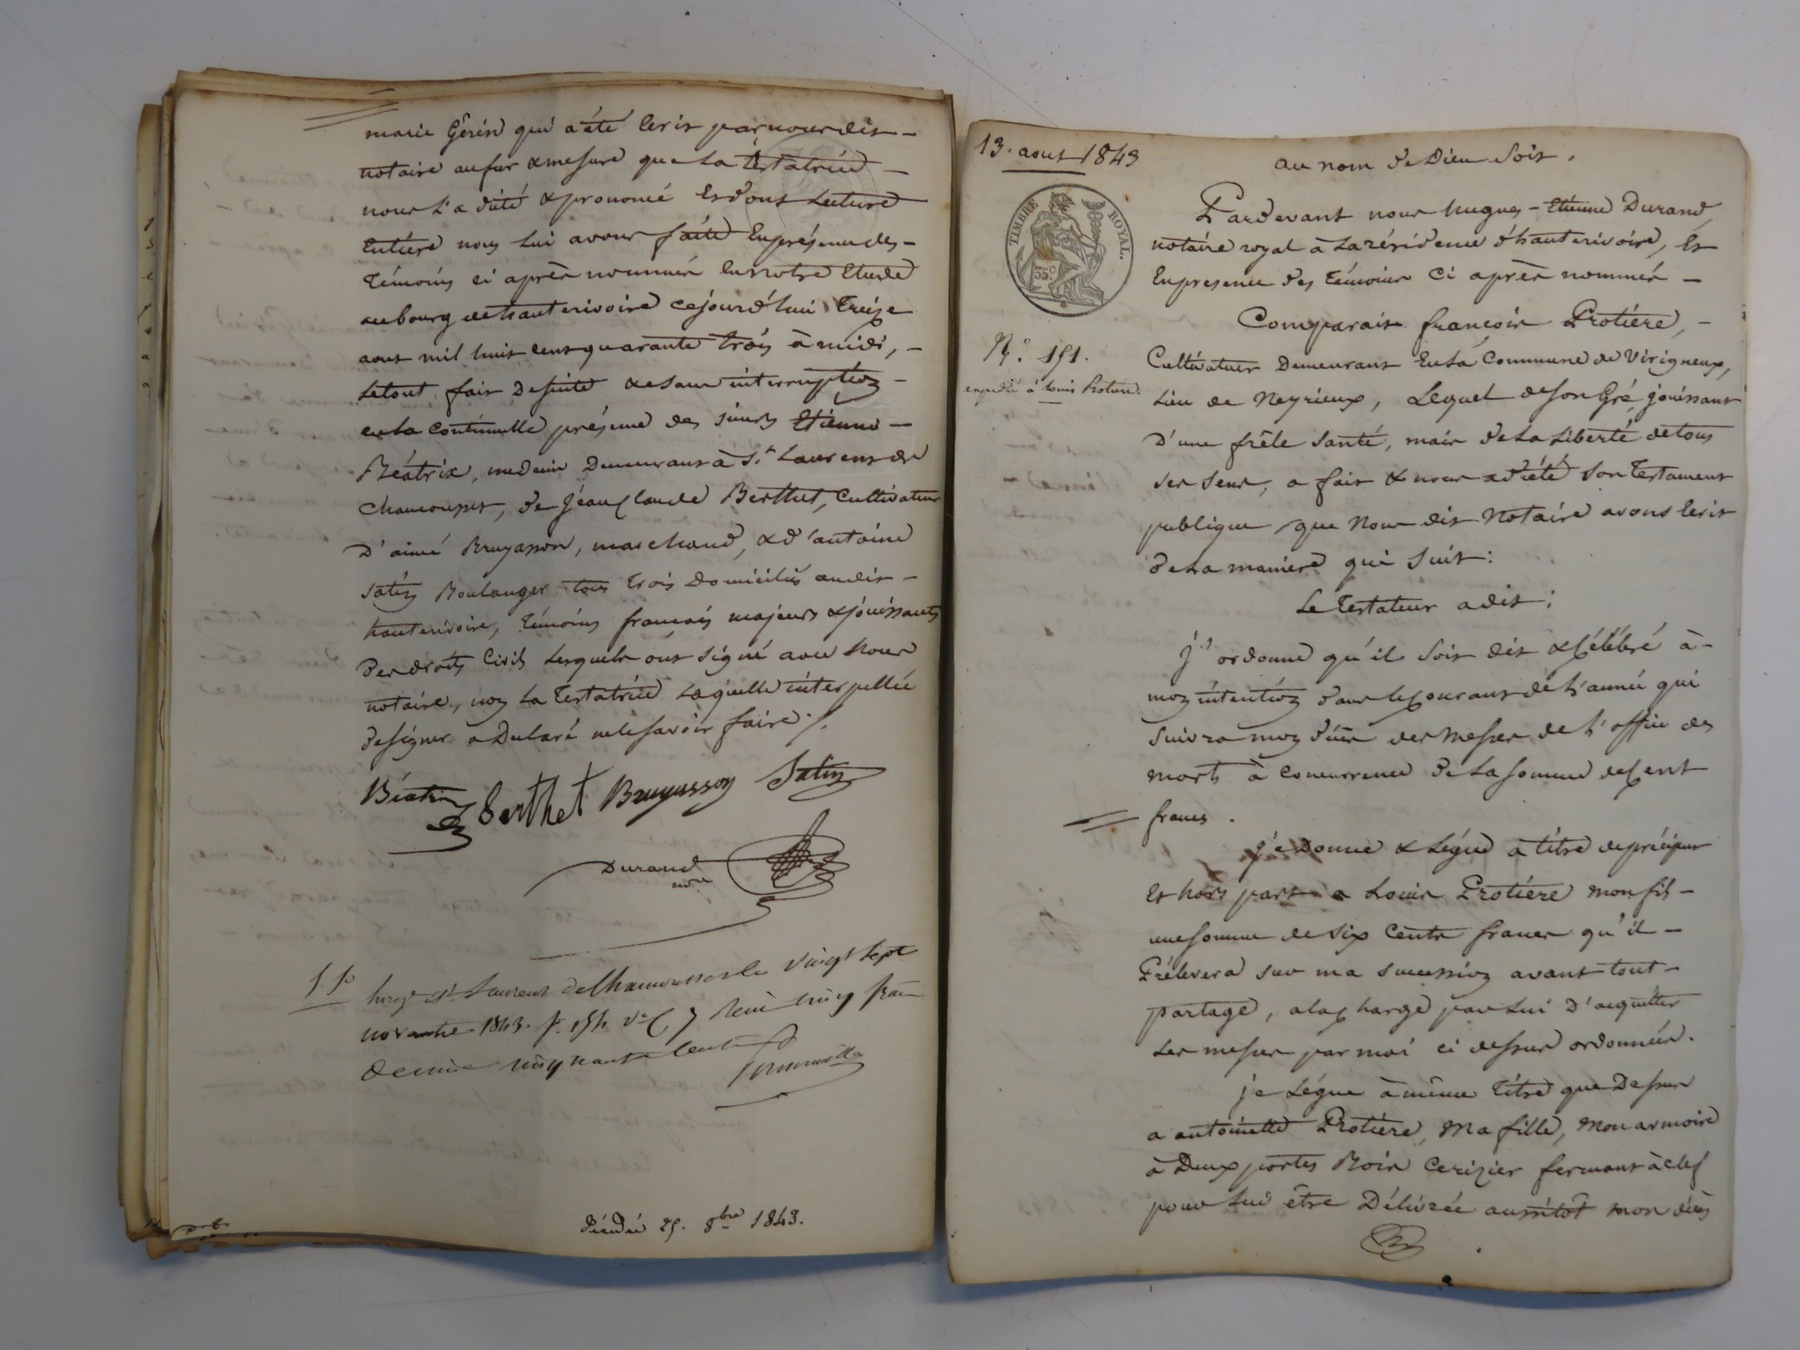 marie Gérin qui a été écrit par nous dit -
notaire au fur & mesure que la testatrice -
nous l'a dicté & prononcé & dont lecture
entière nous lui avons faite en présence des -
témoins ci après nommés en notre Etude
au bourg de hauterivoire cejourd'hui treize
aout mil huit cent quarante trois à midi, -
le tout fait de suite & sans interruption -
en la continuelle présence des sieurs Etienne -
Béatrix, medecin demeurant à St. Laurent de
Chamousset, de Jean Claude Berthet, Cultivateur
D'aimé Bruyasson, marchand, & d'antoine
Satin Boulanger tous trois domiciliés au dit -
hauterivoire, témoins français majeurs & jouissants
des droits civils lesquels ont signé avec nous
notaire, non la testatrice laquelle interpellée
de signer a déclaré ne le savoir faire ./.
Béatrix Berthet Bruyasson Satin
Durand
nore
St Laurent de Chamousset le vingt sept
novembre 1843. fo. 154 vo
décédée 25. 8bre 1843.
13. aout 1843
au nom de Dieu soit.
TIMBRE ROYAL.
35c
Pardevant nous hugues - Etienne Durand,
notaire royal à la résidence d'hauterivoire, &
en presence des témoins ci après nommés -
Comparait françois Protière, -
N.o 151.
Cultivateur demeurant en la Commune de Virigneux,
expédié à Louis Protière
lieu de Neyrieux, Lequel de son gré, jouissant
d'une frêle santé, mais de la liberté de tous
ses sens, a fait & nous a dicté son testament
publique que nous dit notaire avons écrit
de la manière qui suit:
Le testateur a dit:
j'ordonne qu'il soit dit & célébré à -
mon intention dans le courant de l'année qui
suivra mon décès des messes de l'office des
morts à concurrence de la somme de cent
francs.
je donne & lègue à titre de préciput
et hors part a Louis Protière mon fils -
une somme de six cents francs qu'il -
prélevera sur ma succession avant tout -
partage, à la charge par lui d'acquitter
les messes par moi ci dessus ordonnées.
je lègue à même titre que dessus
a antoinette Protière, ma fille, mon armoire
à deux portes bois cerizier fermant à clef
pour lui être délivrée aussitôt mon décès